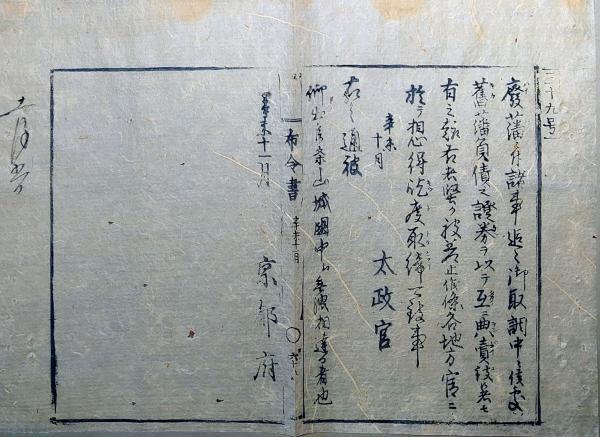 三十九号
廃藩ノ者諸事追々御取調中之候處
舊藩負債之證券ヲ以テ互ニ典賣致候者モ
有之趣右者堅ク被差止候條各地方官ニ
於テ相心得屹度取締可致事
辛未
十月
太政官
右之通被
仰出候条山城國中ニ無洩相達る者也
辛未十一月
京都府
布令書
辛未十一月